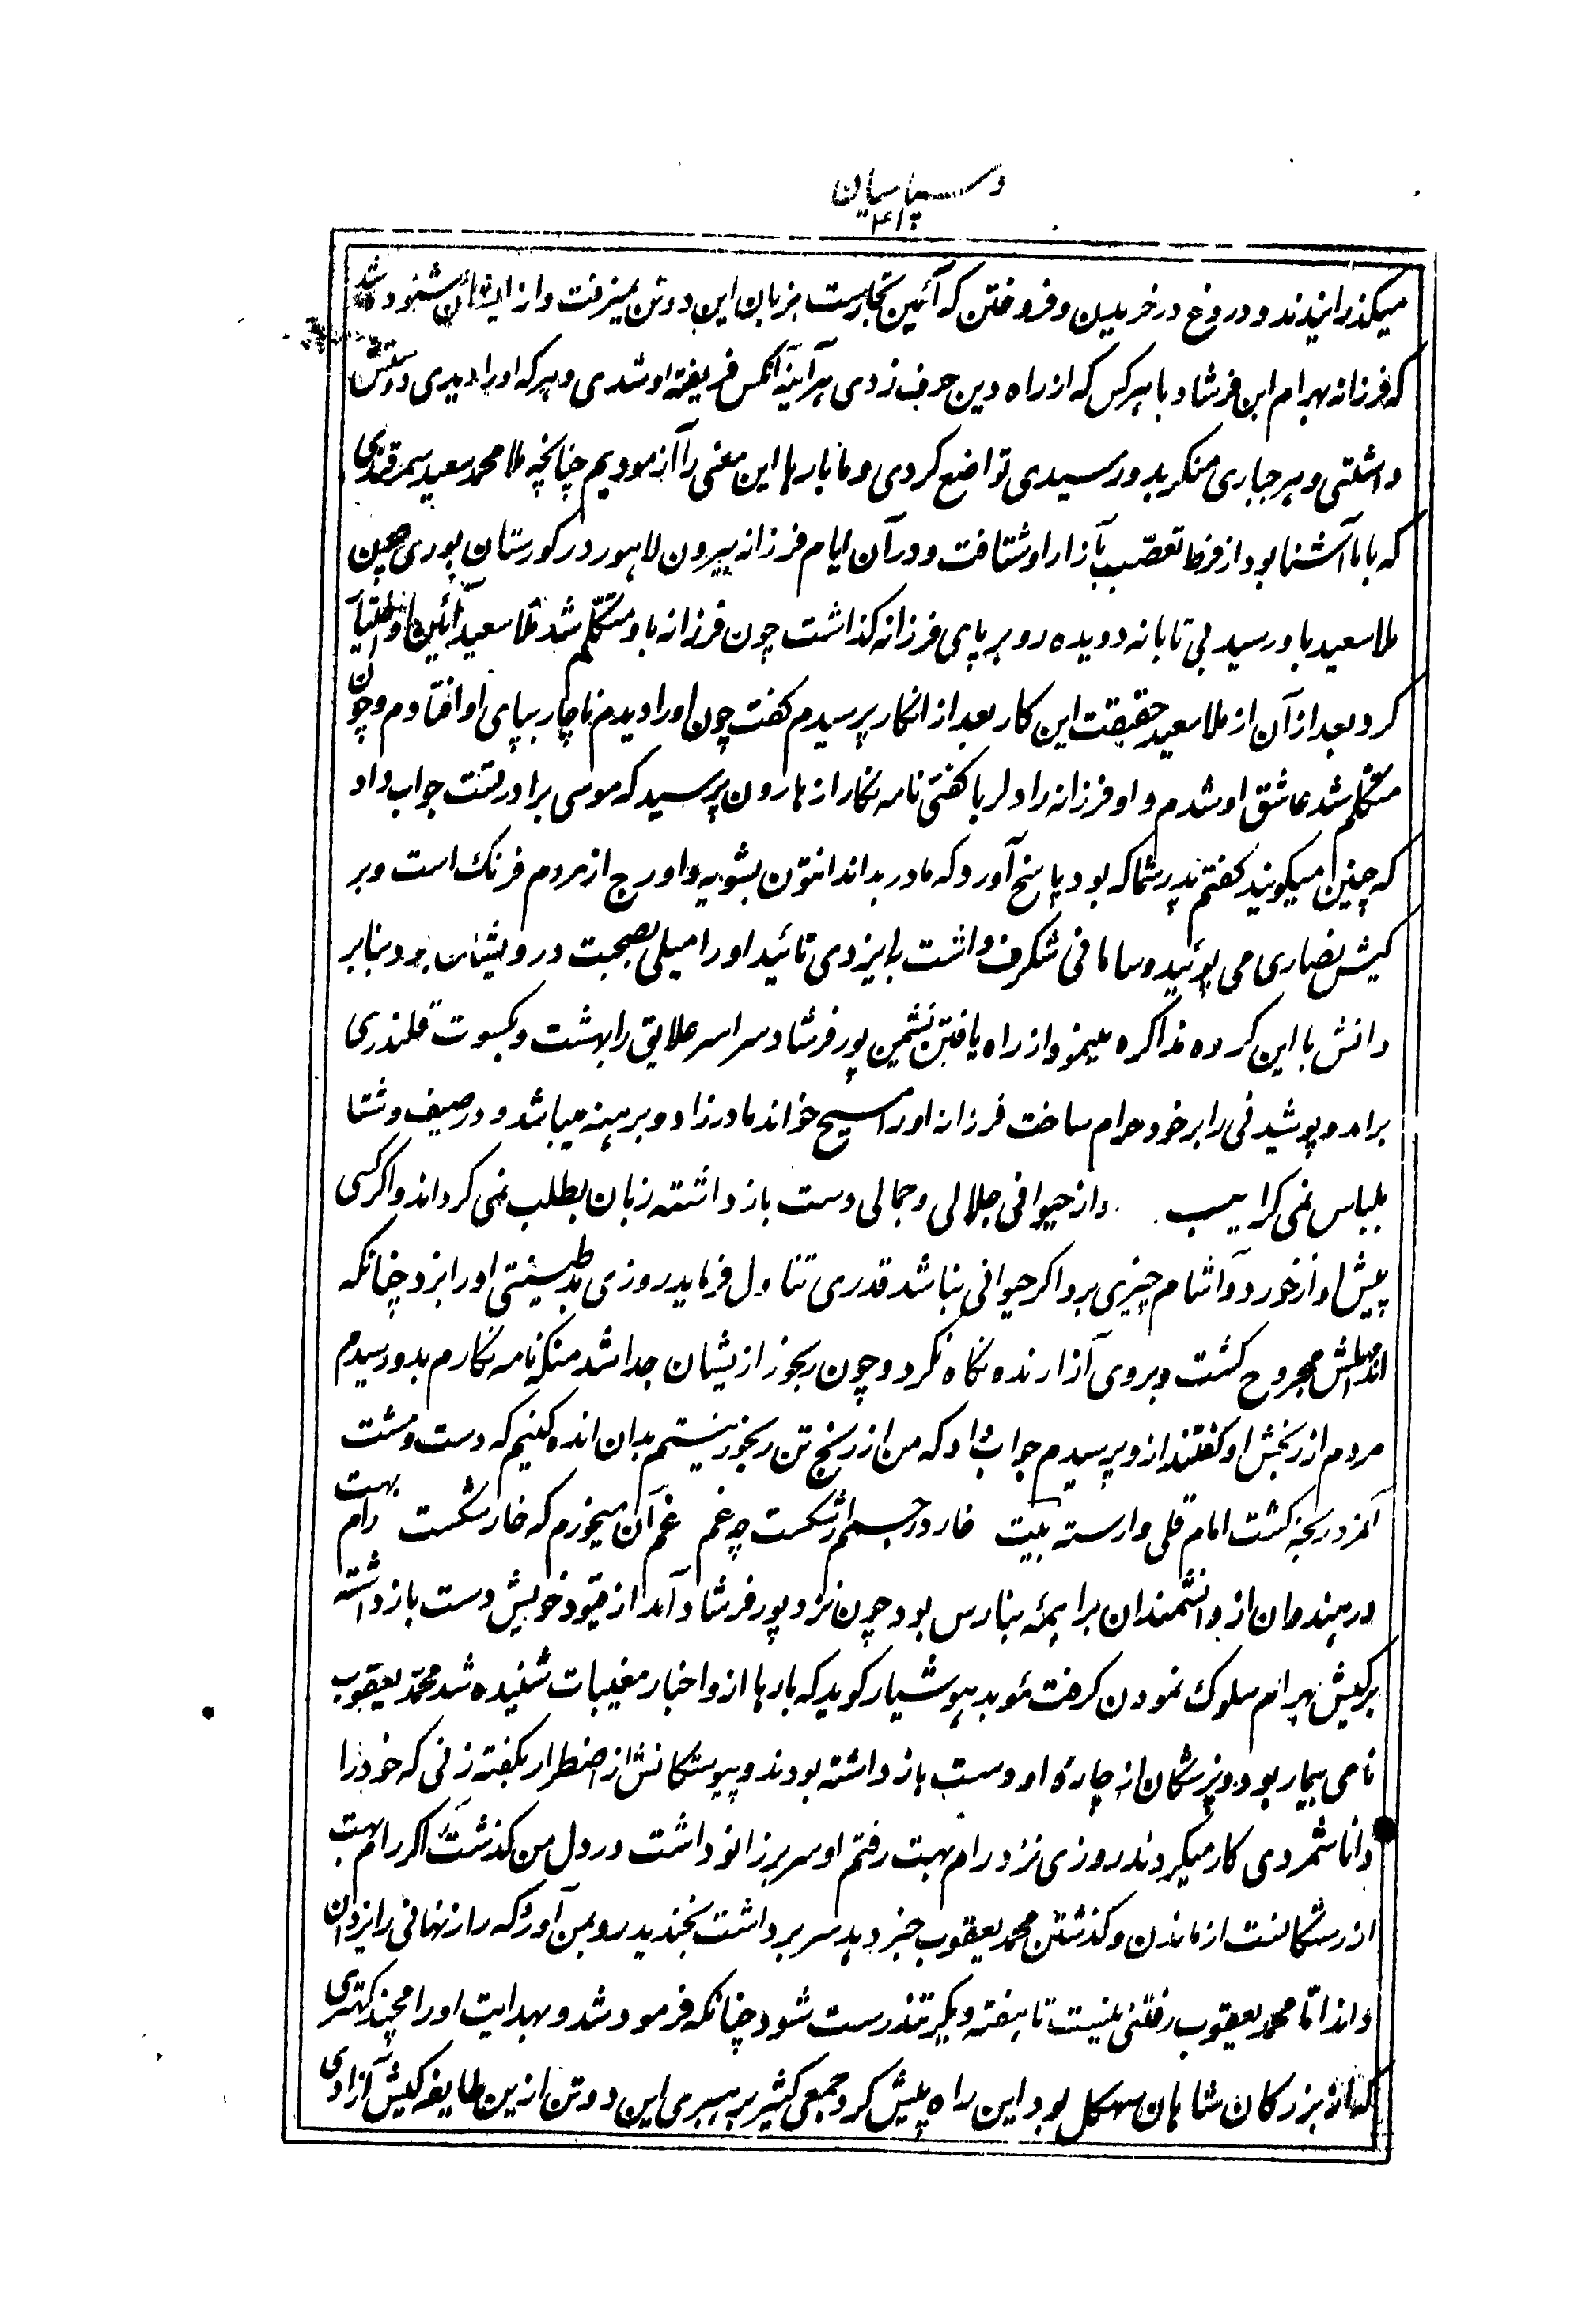 سپاسیان
۴۱
میکذرانیدند و دروغ در خریدن و فروختن که آئین تجارست بزبان این دو تن نمیرفت و از ایشان شنوده شد
که فرزانه بهرام ابن فرشاد با هر کس که از راه دین حرف زدی هر آینه آنکس فریفته او شدی و هر که اورا دیدی دوستش
داشتی و هر جباری منکر بدو رسیدی تواضع کردی و ما بارها این معنی را آزمودیم چنانچه ملا محمد سعید سمرقندی
که با ما آشنا بود از فرط تعصب بآزار او شتافت و در آن ایام فرزانه بیرون لاهور در کورستان بودی چون
ملا سعید باو رسید بی تابانه دویده رو بر پای فرزانه کذاشت چون فرزانه باو متکلم شد ملا سعید آئین او اختیار
کرد بعد از آن از ملا سعید حقیقت این کار بعد از انکار پرسیدم کفت چون اورا دیدم ناچار بپای او افتادم و چون
متکلم شد عاشق او شدم و او فرزانه را دلربا کفتی نامه نکار از هارون پرسید که موسی برادر تست جواب داد
که چنین میکویند کفتم پدر شما که بود پاسخ آورد که مادر بداند انتون بشویه واورج از مردم فرنک است و بر
کیش نصاری می پوئید و سامانی شکرف داشت بایزدی تائید اورا میلی بصحبت درویشان بود بنابر
دانش با این کروه مذاکره مینمود از راه یافتن نشیمن پور فرشاد سراسر علایق را بهشت و بکسوت قلندری
برامد و پوشیدنی را بر خود حرام ساخت فرزانه اورا مسیح خواند مادرزاد و برهنه میباشد و در صیف و شتا
بلباس نمی کراید و از حیوانی جلالی و جمالی دست باز داشته زبان بطلب نمی کرداند و اکر کسی
پیش او از خورد و آشام چیزی برد اکر حیوانی نباشد قدری تناول فرماید روزی بد طینتی اورا بزد چنانکه
اندامش مجروح کشت و بروی آزارنده نکاه نکرد و چون رنجور از یشان جدا شد منکه نامه نکارم بدو رسیدم
مردم از رنجش او کفتند ازو پرسیدم جواب داد که من از رنج تن رنجور نیستم بدان انده کنیم که دست و مشت
آنمرد رنجه کشت امام قلی وارسته بیت خار در جسمم ار شکست چه غم غم آن میخورم که خار شکست رام بهت
در هندوان از دانشمندان براهمه بنارس بود چون نزد پور فرشاد آمد از قیود خویش دست باز داشته
بر کیش بهرام سلوک نمودن کرفت مؤبد هوشیار کوید که بارها ازو اخبار مغیبات شنیده شد محمد یعقوب
نامی بیمار بود و پزشکان از چاره او دست باز داشته بودند و پیوستکانش از اضطرار بکفته زنی که خودرا
دانا شمردی کار میکردند روزی نزد رام بهت رفتم او سر بر زانو داشت در دل من کذشت اکر رام بهت
از رستکانست از ماندن و کذشتن محمد یعقوب خبر دهد سر برداشت بخندید رو بمن آورد که راز نهانی را یزدان
داند اما محمد یعقوب رفتنی نیست تا هفته دیکر تندرست شود چنانکه فرمود شد و بهدایت اورا مچند کهتری
که از بزرکان شاهان سهکل بود این راه پیش کرد جمعی کثیر برهبری این دو تن ازین طایفه کیش آزادی